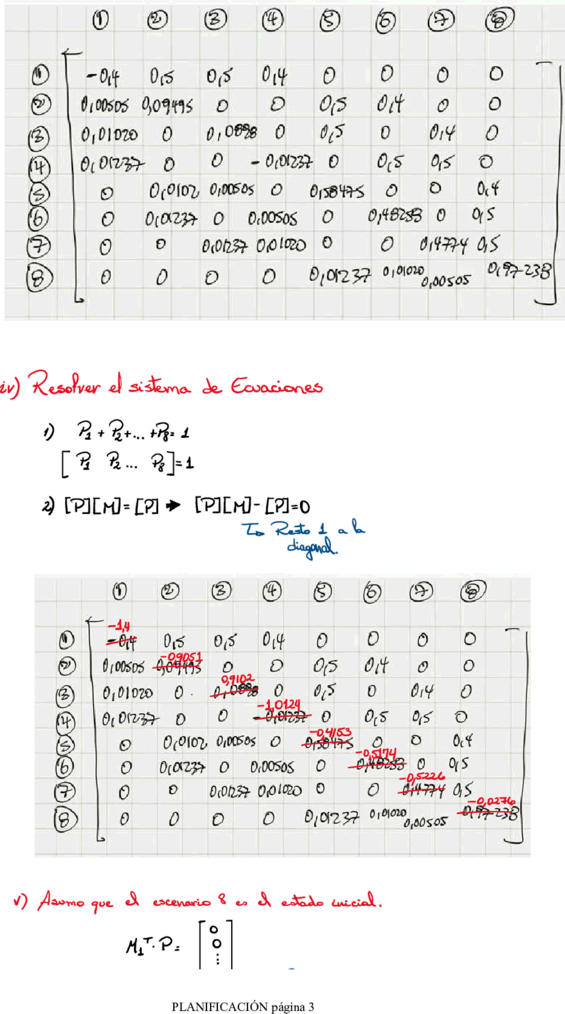 ① ② ③ ④ ⑤ ⑥ ⑦ ⑧
① -0,4 0,5 0,5 0,4 0 0 0 0
② 0,00505 0,09495 0 0 0,5 0,4 0 0
③ 0,01020 0 0,0898 0 0,5 0 0,4 0
④ 0,01237 0 0 -0,01237 0 0,5 0,5 0
⑤ 0 0,0102 0,00505 0 0,58475 0 0 0,4
⑥ 0 0,01237 0 0,00505 0 0,48258 0 0,5
⑦ 0 0 0,01237 0,01020 0 0 0,4774 0,5
⑧ 0 0 0 0 0,01237 0,01020 0,00505 0,97238
iv) Resolver el sistema de Ecuaciones
1) P1 + P2 + ... + P8 = 1
[ P1 P2 ... P8 ] = 1
2) [P][M] = [P] → [P][M] - [P] = 0
Resto 1 a la
diagonal.
① ② ③ ④ ⑤ ⑥ ⑦ ⑧
-1,4
① -0,4 0,5 0,5 0,4 0 0 0 0
-0,9051
② 0,00505 0,09495 0 0 0,5 0,4 0 0
0,9102
③ 0,01020 0 0,0898 0 0,5 0 0,4 0
-1,0124
④ 0,01237 0 0 -0,01237 0 0,5 0,5 0
-0,4153
⑤ 0 0,0102 0,00505 0 0,58475 0 0 0,4
-0,5174
⑥ 0 0,01237 0 0,00505 0 0,48258 0 0,5
-0,5226
⑦ 0 0 0,01237 0,01020 0 0 0,4774 0,5
-0,0276
⑧ 0 0 0 0 0,01237 0,01020 0,00505 0,97238
v) Asumo que el escenario 8 es el estado inicial.
M1ᵀ · P = [ 0
0
⋮ ]
PLANIFICACIÓN página 3